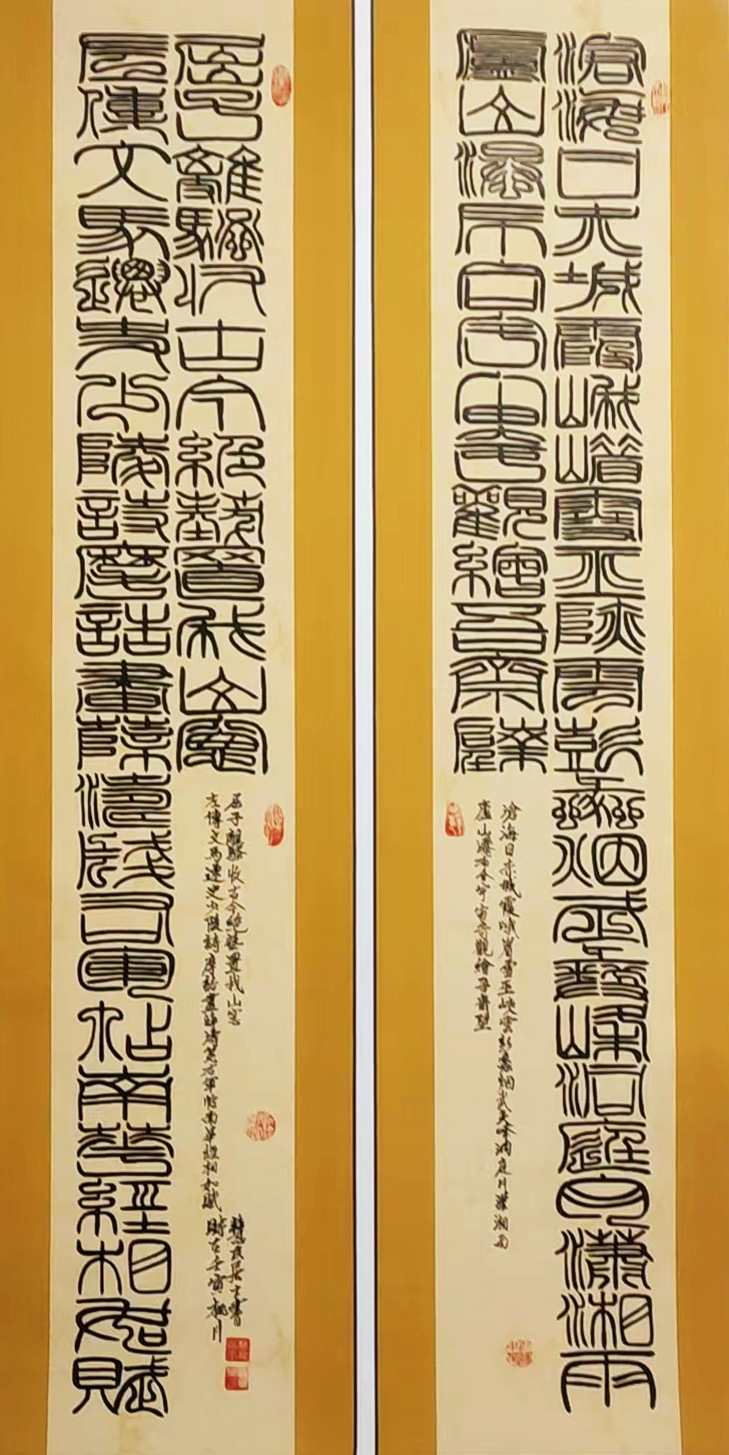 滄海日赤城霞峨嵋雪巫峽雲彭蠡烟武夷峰洞庭月瀟湘雨
廬山瀑布合宇宙奇觀繪吾齋壁
滄海日赤城霞峨眉雪巫峽雲彭蠡烟武夷峰洞庭月瀟湘雨
廬山瀑布合宇宙奇觀繪吾齋壁
左傳文馬遷史少陵詩摩詰畫薛濤箋右軍帖南華經相如賦
屈子離騷收古今絕藝置我山窗
左傳文馬遷史少陵詩摩詰畫薛濤箋右軍帖南華經相如賦
屈子離騷收古今絕藝置我山窗
居士書
時在壬寅桃月